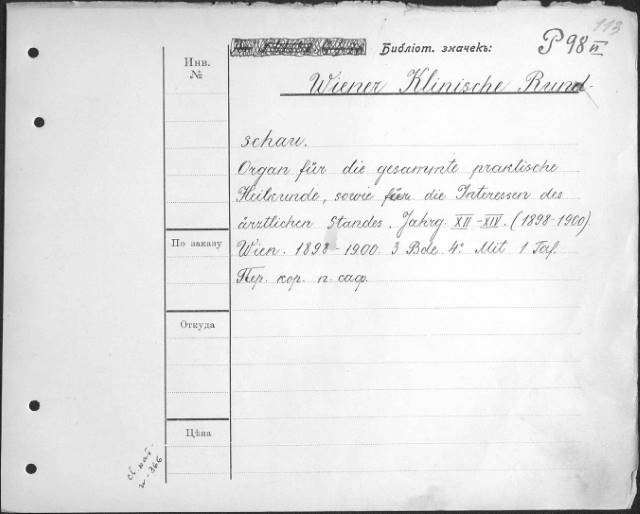 113
Библіот. значекъ: P 98 II
Инв.
№
Wiener Klinische Rund-
schau.
Organ für die gesammte praktische
Heilkunde, sowie für die Interessen des
ärztlichen Standes. Jahrg. XII-XIV. (1898-1900).
По заказу
Wien. 1898-1900. 3 Bde. 4º. Mit 1 Taf.
Пер. кор. п. саф.
Откуда
Цѣна
366